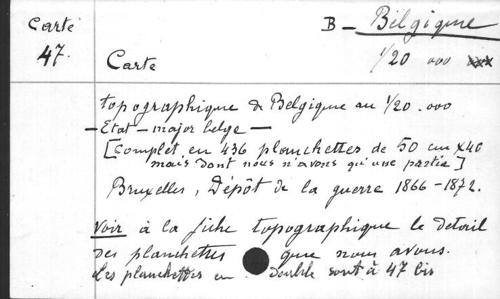 Carte B - Belgique
47. Carte 1/20 000
topographique de Belgique au 1/20.000
- Etat-major belge -
[Complet en 436 planchettes de 50 cm x 40
mais dont nous n'avons qu'une partie]
Bruxelles, Dépôt de la guerre 1866-1872.
Voir à la fiche topographique le detail
des planchettes que nous avons.
Les planchettes en double sont à 47 bis